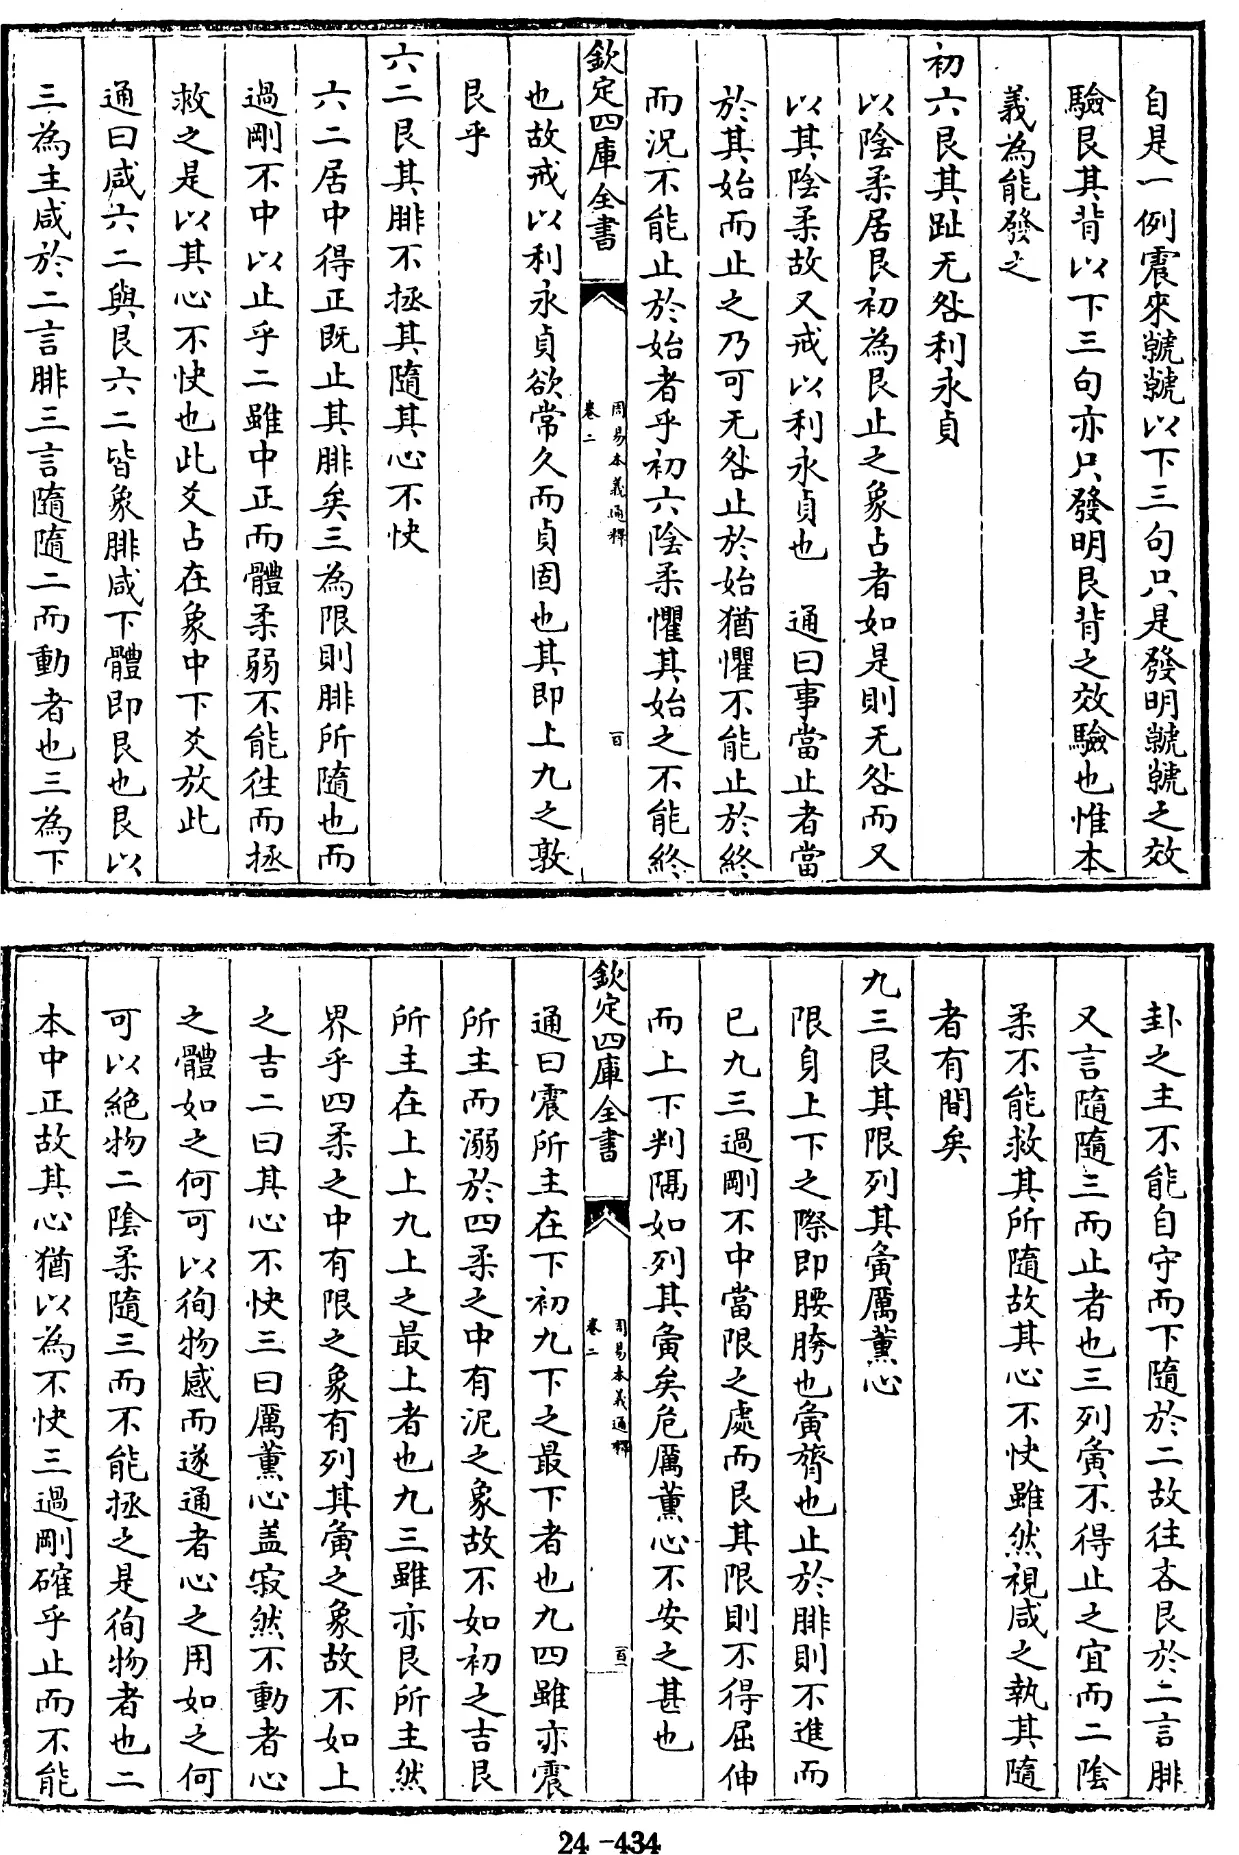 自是一例震來虩虩以下三句只是發明虩虩之效
驗艮其背以下三句亦只發明艮背之效驗也惟本
義為能發之
初六艮其趾无咎利永貞
以陰柔居艮初為艮止之象占者如是則无咎而又
以其陰柔故又戒以利永貞也　通曰事當止者當
於其始而止之乃可无咎止於始猶懼不能止於終
而況不能止於始者乎初六陰柔懼其始之不能終
欽定四庫全書
周易本義通釋
卷二
百
也故戒以利永貞欲常久而貞固也其即上九之敦
艮乎
六二艮其腓不拯其隨其心不快
六二居中得正既止其腓矣三為限則腓所隨也而
過剛不中以止乎二雖中正而體柔弱不能往而拯
救之是以其心不快也此爻占在象中下爻放此
通曰咸六二與艮六二皆象腓咸下體即艮也艮以
三為主咸於二言腓三言隨隨二而動者也三為下
卦之主不能自守而下隨於二故往吝艮於二言腓
又言隨隨三而止者也三列夤不得止之宜而二陰
柔不能救其所隨故其心不快雖然視咸之執其隨
者有間矣
九三艮其限列其夤厲薰心
限身上下之際即腰胯也夤膂也止於腓則不進而
已九三過剛不中當限之處而艮其限則不得屈伸
而上下判隔如列其夤矣危厲薰心不安之甚也
欽定四庫全書
周易本義通釋
卷二
百一
通曰震所主在下初九下之最下者也九四雖亦震
所主而溺於四柔之中有泥之象故不如初之吉艮
所主在上上九上之最上者也九三雖亦艮所主然
界乎四柔之中有限之象有列其夤之象故不如上
之吉二曰其心不快三曰厲薰心盖寂然不動者心
之體如之何可以徇物感而遂通者心之用如之何
可以絕物二陰柔隨三而不能拯之是徇物者也二
本中正故其心猶以為不快三過剛確乎止而不能
24-434